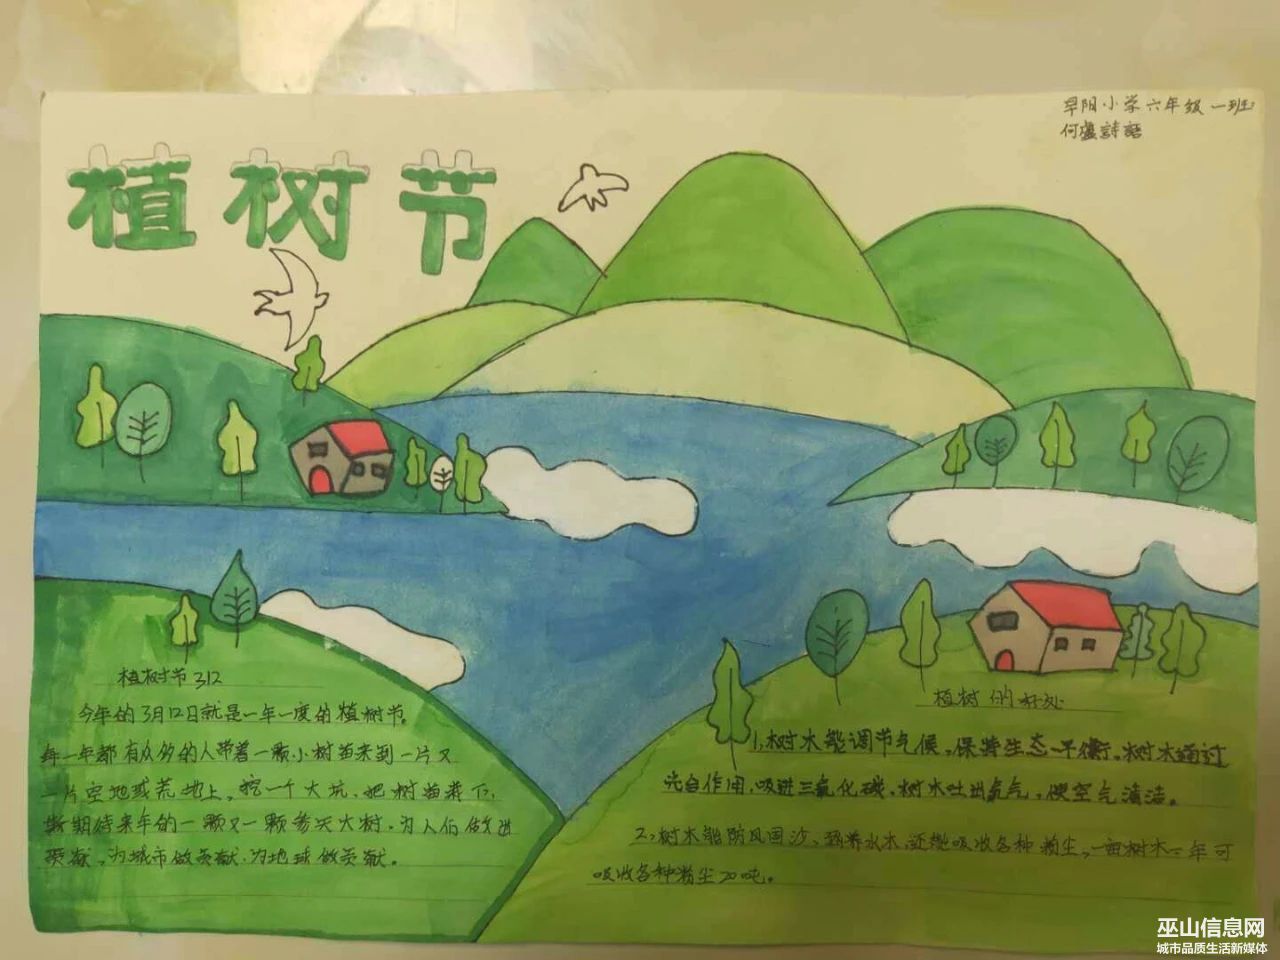 早阳小学六年级一班
何盛詩語
植树节
植树节 312
今年的3月12日就是一年一度的植树节。
每一年都有众多的人带着一颗小树苗来到一片又
一片空地或荒地上。挖一个大坑,把树苗养下,
期待来年的一颗又一颗参天大树,为人们做出
贡献,为城市做贡献,为地球做贡献。
植树的好处
1,树木能调节气候,保持生态平衡。树木通过
光合作用,吸进二氧化碳,树木吐出氧气,使空气清洁。
2,树木能防风固沙,涵养水木,还能吸收各种粉尘,一亩树木一年可
吸收各种粉尘20吨。
巫山信息网
城市品质生活新媒体